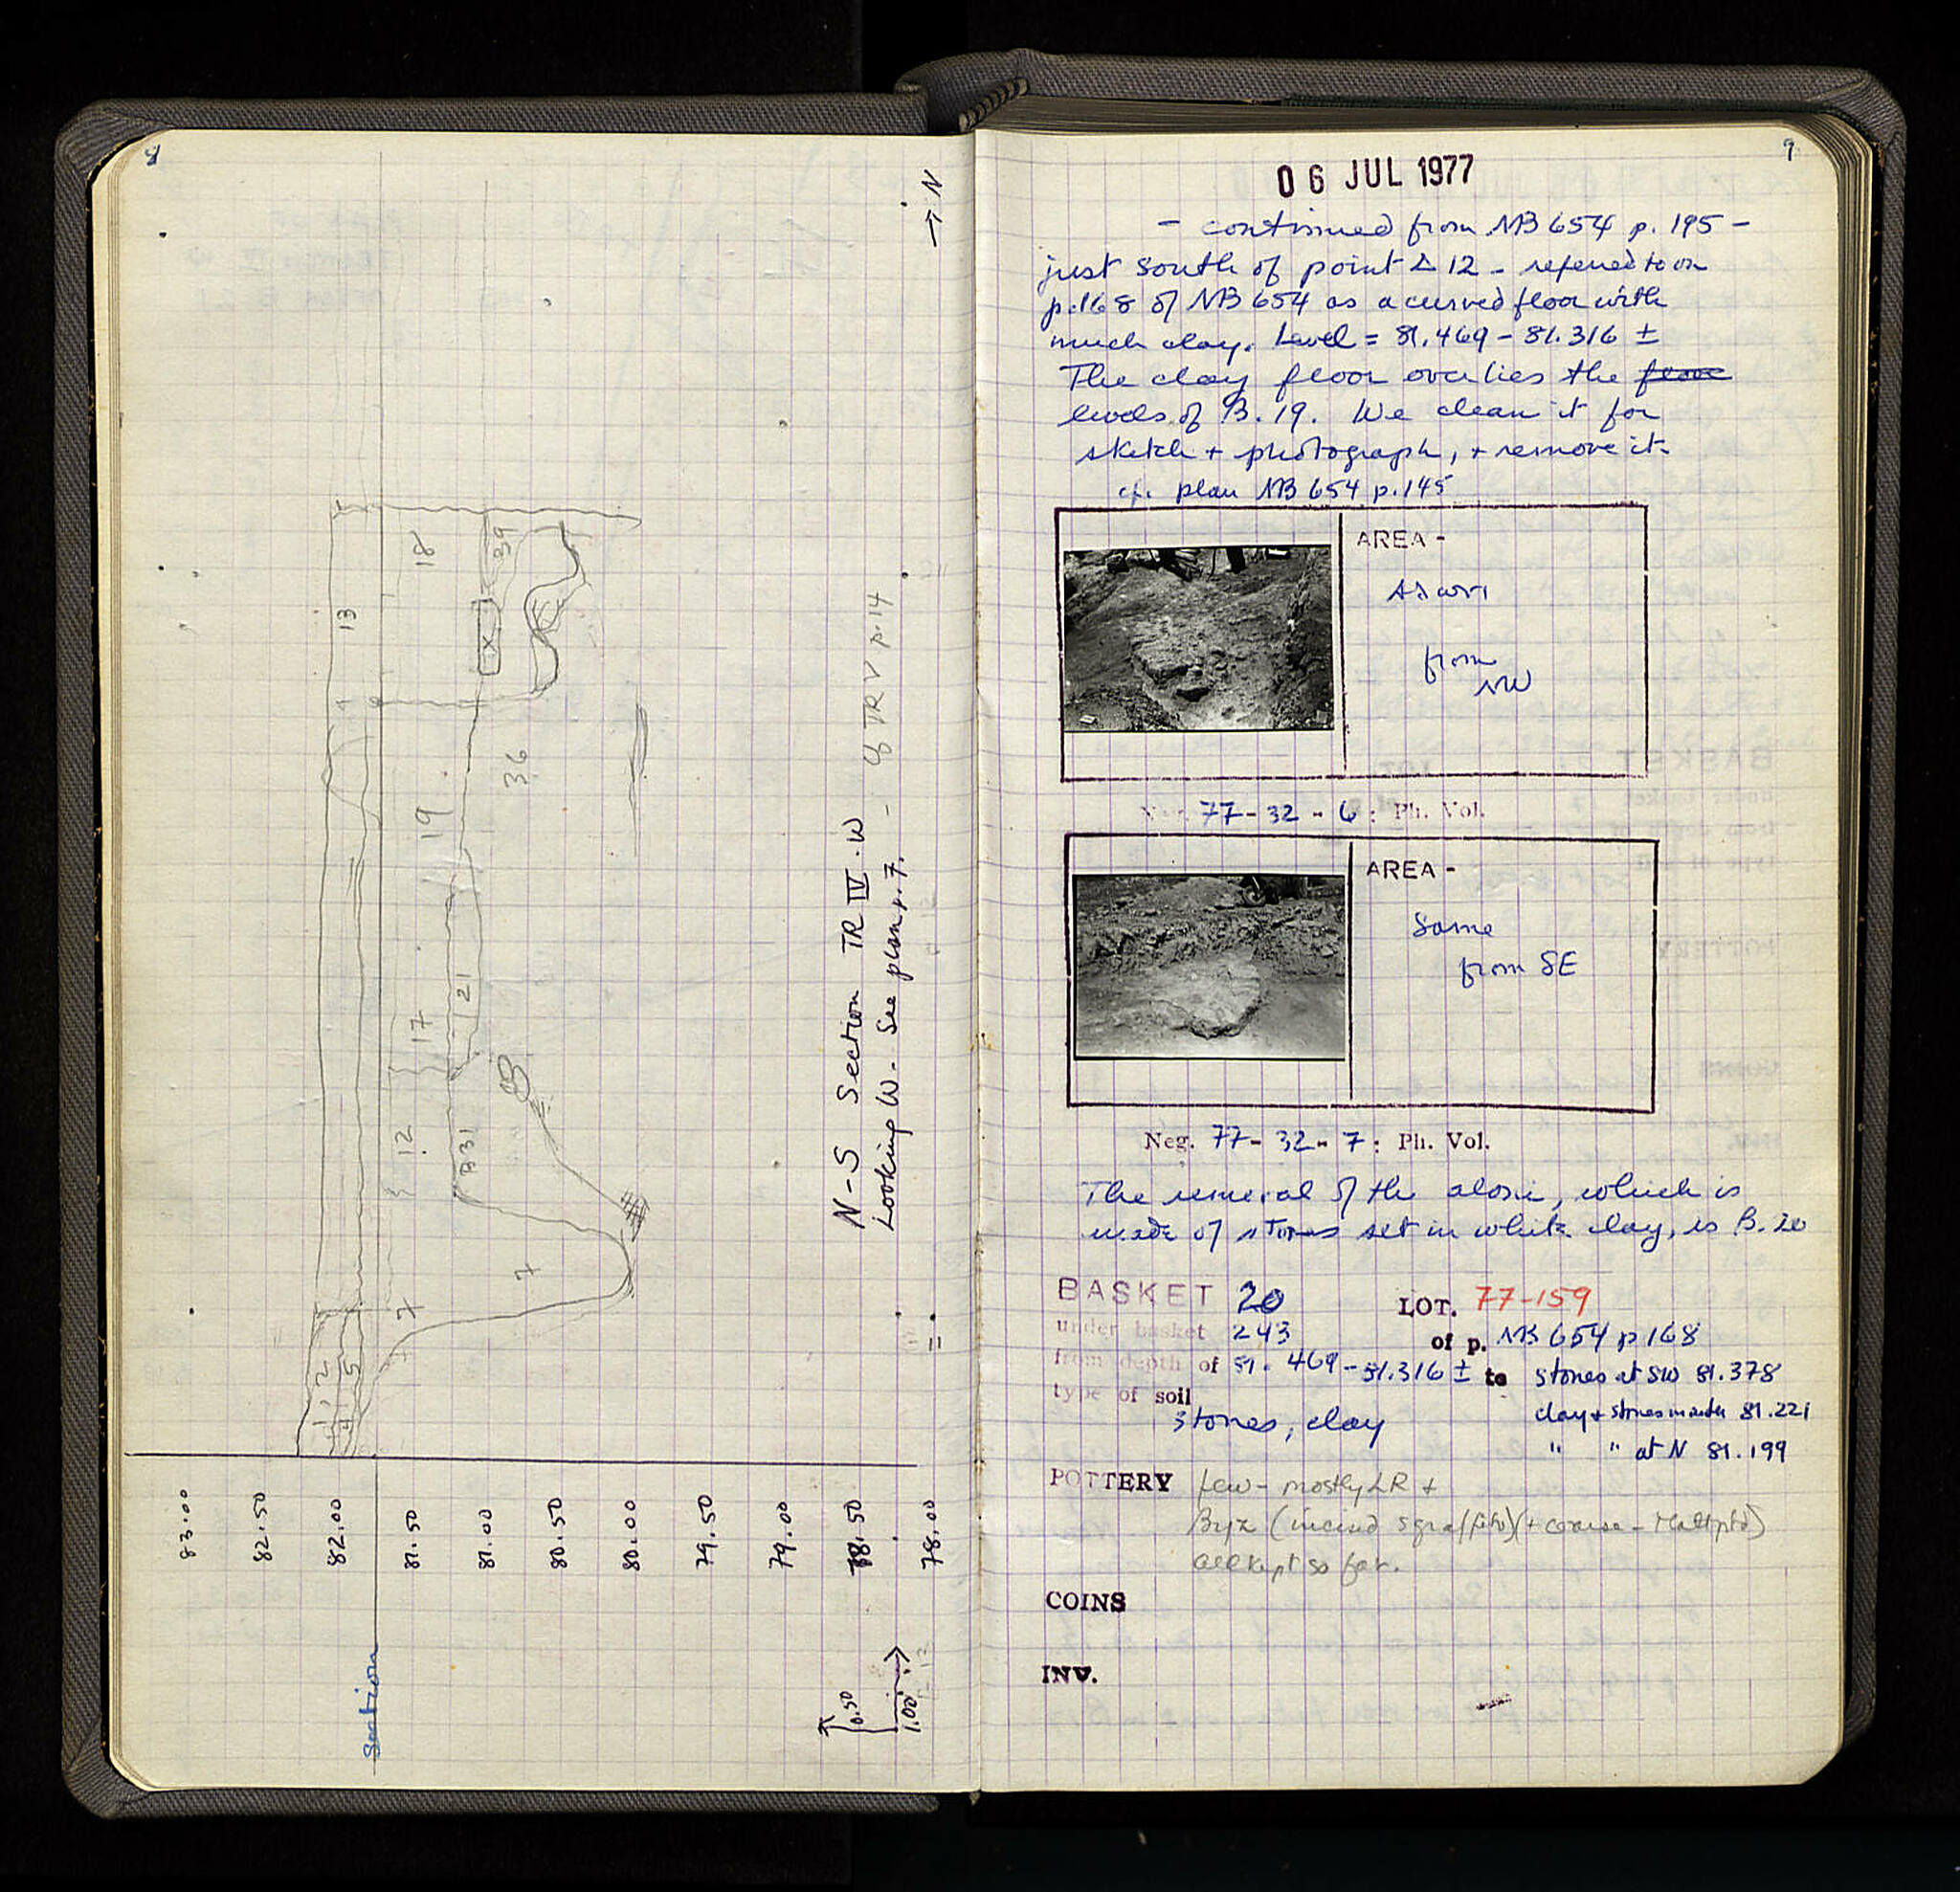 8
→ N
13
18
39
X
36
19
21
17
12
B31
7
7
1
2
4
5
N-S Section TR IV-W - cf TR V p.14
Looking W - See plan p. 7.
83.00
82.50
82.00
81.50
81.00
80.50
80.00
79.50
79.00
78.50
78.00
Section
0.50
1.00
9
06 JUL 1977
- continued from NB 654 p. 195 -
just south of point Δ 12 - referred to on
p. 168 of NB 654 as a curved floor with
much clay. Level = 81.469 - 81.316 ±
The clay floor overlies the floor
levels of B. 19. We clean it for
sketch + photograph, + remove it.
cf. plan NB 654 p. 145
AREA -
from
NW
Neg. 77-32-6: Ph. Vol.
AREA -
Same
from SE
Neg. 77-32-7: Ph. Vol.
The removal of the above, which is
made of stones set in white clay, is B. 20
BASKET 20 LOT. 77-159
under basket 243 of p. NB 654 p 168
from depth of 81.469-81.316 ± to stones at SW 81.378
type of soil
stones, clay
clay + stones in center 81.221
" " at N 81.199
POTTERY few - mostly LR +
Byz (incised sgraffito) (+ coarse - Matt ptd)
all kept so far.
COINS
INV.